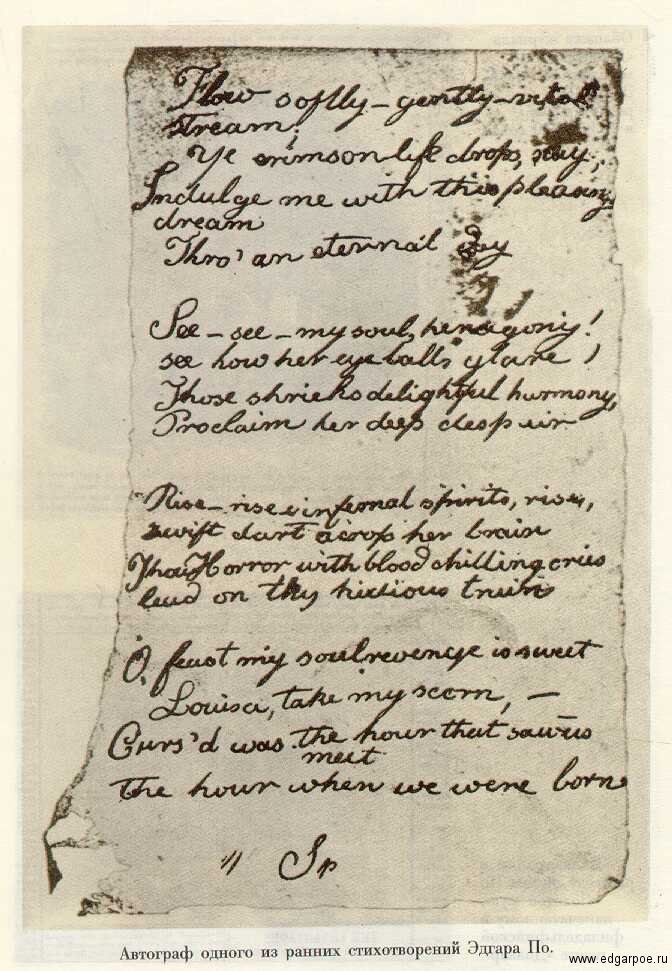 Flow softly – gently – vital
stream;
Ye crimson life drops, stay,
Indulge me with this pleasing
dream
Thro' an eternal day
See – see – my soul, her agony!
see how her eye balls glare!
Those shrieks delightful harmony,
Proclaim her deep despair
Rise – rise infernal spirits, rise,
swift dart across her brain
Thou Horror with blood chilling cries
lead on thy hidious train
O, feast my soul, revenge is sweet
Louisa, take my scorn, –
Curs'd was the hour that saw us
meet
The hour when we were born
Автограф одного из ранних стихотворений Эдгара По.
www.edgarpoe.ru